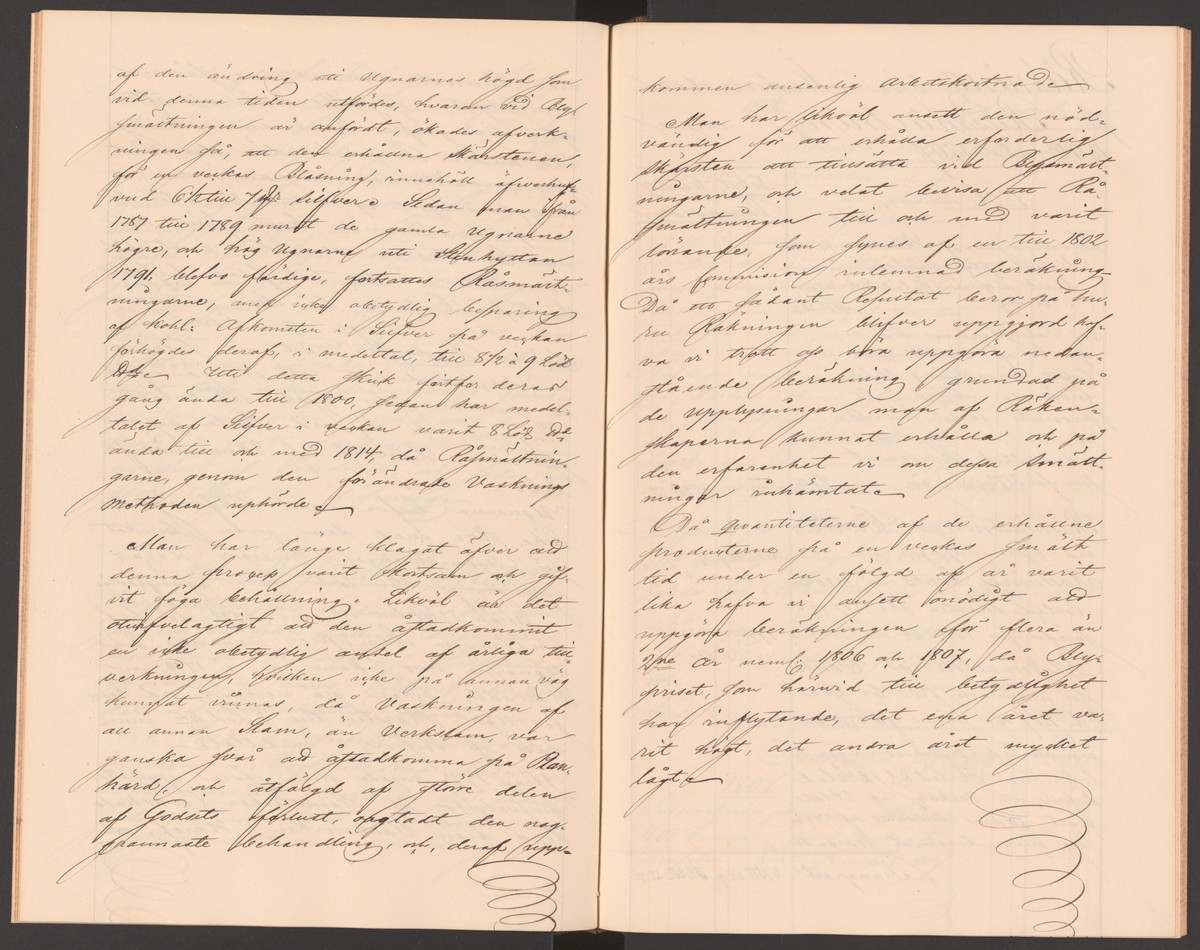 af den ändring uti Ugnarnes högd som
vid denna tiden utfördes, hvarom vid Bly-
smältningen är anfördt, ökades afverk-
ningen så, att den erhållna Skärstenen,
för en veckas Blåsning, innehöll
6 till 7 silfver. Sedan man från
1787 till 1789 murat de gamla Ugnarne
högre, och hög Ugnarne uti Stenhyttan
1791. blefvo färdige, fortsattes Råsmält-
ningarne, med icke obetydlig besparing
af Kohl: Afkomsten i Silfver på veckan
förhögdes deraf, i medeltal, till 8½ à 9 Löd
Uti detta skick fortfor deras
gång ända till 1800, sedan har medel-
talet af Silfver i veckan varit 8 Löd
ända till och med 1814, då Råsmältnin-
garne, genom den förändrade Vasknings
methoden uphörde.
Man har länge klagat öfver att
denna process varit kostsam och gif-
vit föga behållning. Likväl är det
otvifvelagtigt att den åstadkommit
en icke obetydlig andel af årliga till-
verkningen, hvilken icke på annan väg
kunnat vinnas, då Vaskningen af
all annan Slam, än Verkslam, var
ganska svår att åstadkomma på Plan-
härd, och åtföljd af större delen
af Godsets förlust, oagtadt den nog-
grannaste behandling, och, deraf upp-
kommen ansenlig Arbetskostnad
Man har likväl ansett den nöd-
vändig för att erhålla erforderlig
Skärsten att tillsätta vid Blysmält-
ningarne, och velat bevisa att Rå-
smältningen till och med varit
lönande, som synes af en till 1802
års Commission inlemnad beräkning
Då ett sådant Resultat beror på hu-
ru Räkningen blifver uppgjord haf-
va vi trott oss böra uppgöra nedan-
stående beräkning grundad på
de Upplysningar man af Räken-
skaperna kunnat erhålla och på
den erfarenhet vi om dessa Smält-
ningar inhämtat
Då qvantiteterne af de erhållne
producterne på en veckas smält
tid under en följd af år varit
lika hafva vi ansett onödigt att
uppgöra beräkningen för flera än
2ne År neml: 1806 och 1807, då Bly-
priset, som härvid till betydlighet
har inflytande, det ena året va-
rit högt, det andra året mycket
lågt